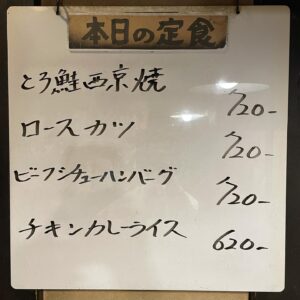 本日の定食
とろ鮭西京焼 720-
ロースカツ 720-
ビーフシチューハンバーグ 720-
チキンカレーライス 620-